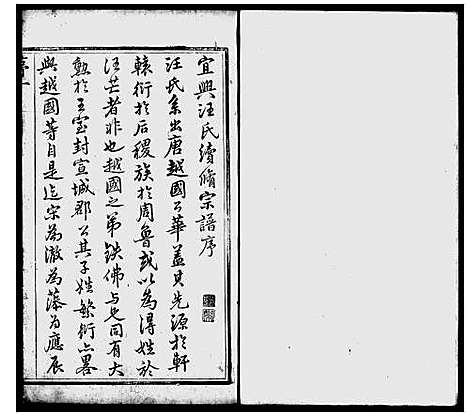 宜興汪氏續脩宗譜序
汪氏系出唐越國公華蓋其先源於軒
轅衍於后稷族於周魯或以為得姓於
汪芒者非也越國之弟鉄佛與之同有大
勲於王室封宣城郡公其子姓繁衍亦畧
與越國等自是迄宋為澈為藻為應辰
序